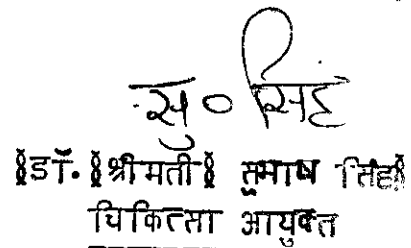 सु० सिंह
(डॉ.(श्रीमती) सुभाष सिंह)
चिकित्सा आयुक्त